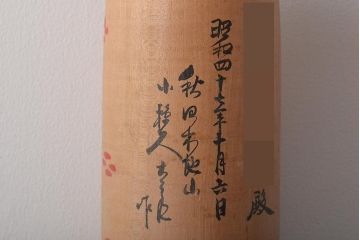 殿
昭和四十三年十月六日
秋田木地山
小椋久太郎
作